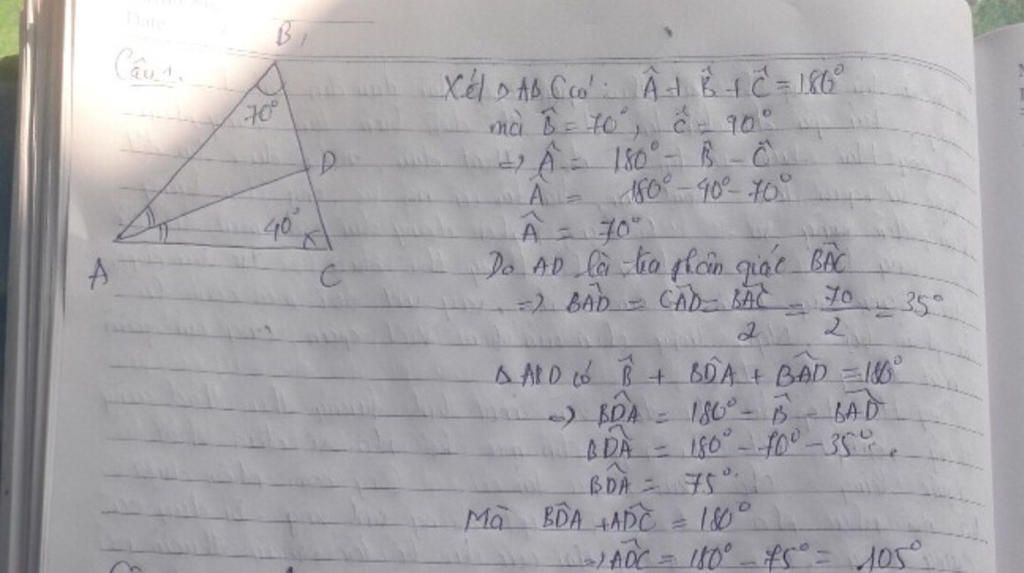 Date
Câu 1.
B
70°
D
40°
A
C
Xét Δ ABC có: Â + B̂ + Ĉ = 180°
mà B̂ = 70°, Ĉ = 40°
=> Â = 180° - B̂ - Ĉ
Â = 180° - 40° - 70°
Â = 70°
Do AD là tia phân giác BÂC
=> BÂD = CÂD = BÂC/2 = 70/2 = 35°
Δ ABD có B̂ + BD̂A + BÂD = 180°
=> BD̂A = 180° - B̂ - BÂD
BD̂A = 180° - 70° - 35°.
BD̂A = 75°.
Mà BD̂A + AD̂C = 180°
=> AD̂C = 180° - 75° = 105°